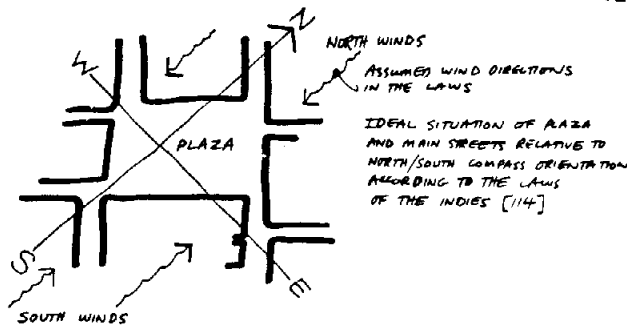 N
NORTH WINDS
W
ASSUMED WIND DIRECTIONS
IN THE LAWS
PLAZA
IDEAL SITUATION OF PLAZA
AND MAIN STREETS RELATIVE TO
NORTH/SOUTH COMPASS ORIENTATION
ACCORDING TO THE LAWS
OF THE INDIES [114]
S
E
SOUTH WINDS